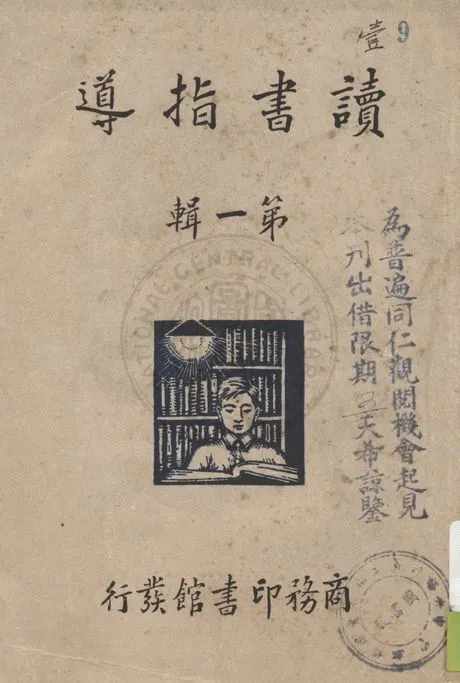 壹 9
讀書指導
第一輯
NATIONAL CENTRAL LIBRARY
為普遍同仁觀閱機會起見
本刊出借限期 天希諒鑒
商務印書館發行